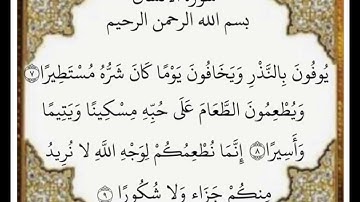 سورة الإنسان
بسم الله الرحمن الرحيم
يُوفُونَ بِالنَّذْرِ وَيَخَافُونَ يَوْمًا كَانَ شَرُّهُ مُسْتَطِيرًا ٧
وَيُطْعِمُونَ الطَّعَامَ عَلَىٰ حُبِّهِ مِسْكِينًا وَيَتِيمًا
وَأَسِيرًا ٨ إِنَّمَا نُطْعِمُكُمْ لِوَجْهِ اللَّهِ لَا نُرِيدُ
مِنكُمْ جَزَاءً وَلَا شُكُورًا ٩